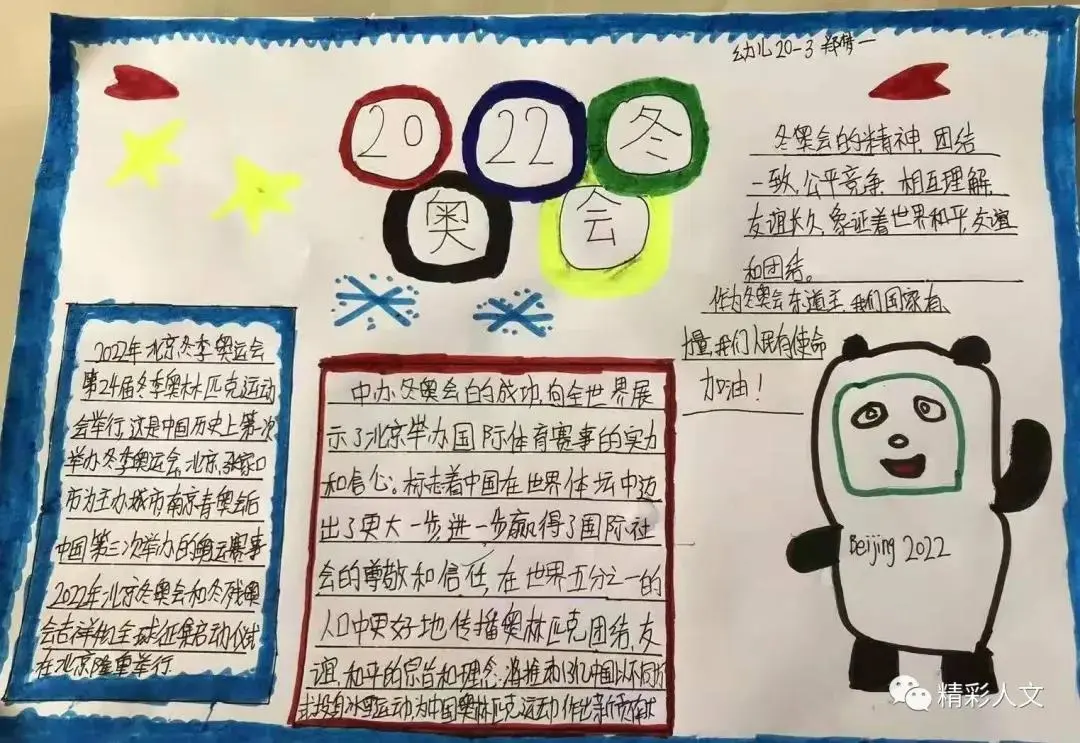 幼儿20-3
20
22
冬
奥
会
冬奥会的精神,团结
一致、公平竞争 相互理解
友谊长久,象证着世界和平,友谊
和团结。
作为冬奥会东道主,我们国家有
力量,我们人民有使命
加油!
2022年北京冬季奥运会
第24届冬季奥林匹克运动
会举行,这是中国历史上第一次
举办冬季奥运会,北京、张家口
市为主办城市南京青奥会后
中国第三次举办的奥运赛事
2022年北京冬奥会和冬残奥
会吉祥物全球征集启动仪式
在北京隆重举行
中办冬奥会的成功,向全世界展
示了北京举办国际体育赛事的实力
和信心。标志着中国在世界体坛中迈
出了更大一步,进一步赢得了国际社
会的尊敬和信任,在世界五分之一的
人口中更好地传播奥林匹克团结、友
谊、和平的宗旨和理念,将推动13亿中国人以不同方
式投身冰雪运动,为中国奥林匹克运动作出新贡献
Beijing 2022
精彩人文